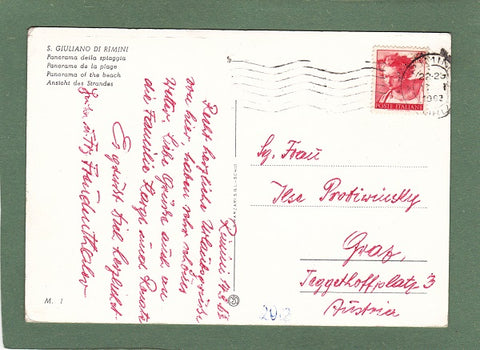 S. GIULIANO DI RIMINI
Panorama della spiaggia
Panorama de la plage
Panorama of the beach
Ansicht des Strandes
Rimini
Recht herzliche Urlaubsgrüße
von hier, haben sehr schönes
Wetter. Liebe Grüße auch an
die Familie und
Es grüßt Dich herzlichst
Freudenthaler
M. 1
POSTE ITALIANE
22-23
Sg. Frau
Ilse Protiwinsky
Graz,
Tegetthoffplatz 3
Austria